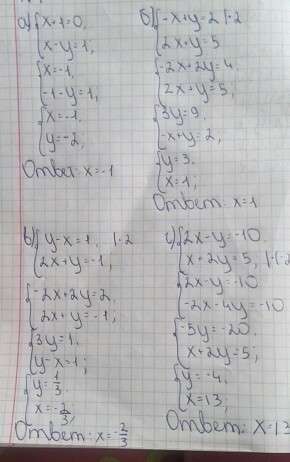 а) { x+1=0,
x-y=1,
{ x=-1,
-1-y=1,
{ x=-1.
y=-2,
Ответ: x=-1
б) { -x+y=2 |·2
2x+y=5
{ -2x+2y=4.
2x+y=5,
{ 3y=9.
-x+y=2,
{ y=3.
x=1;
Ответ: x=1
в) { y-x=1, |·2
2x+y=-1,
{ -2x+2y=2.
2x+y=-1;
{ 3y=1.
y-x=1;
{ y=1/3
x=-2/3;
Ответ: x=-2/3
г) { 2x-y=-10.
x+2y=5, |·(-2
{ 2x-y=-10
-2x-4y=-10
{ -5y=-20.
x+2y=5;
{ y=-4.
x=13;
Ответ: x=13